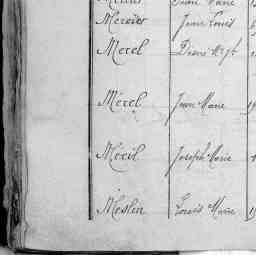 Mercier Jean Louis
Merel
Merel Jean Marie
Méril Joseph Marie
Meslin Louis Marie